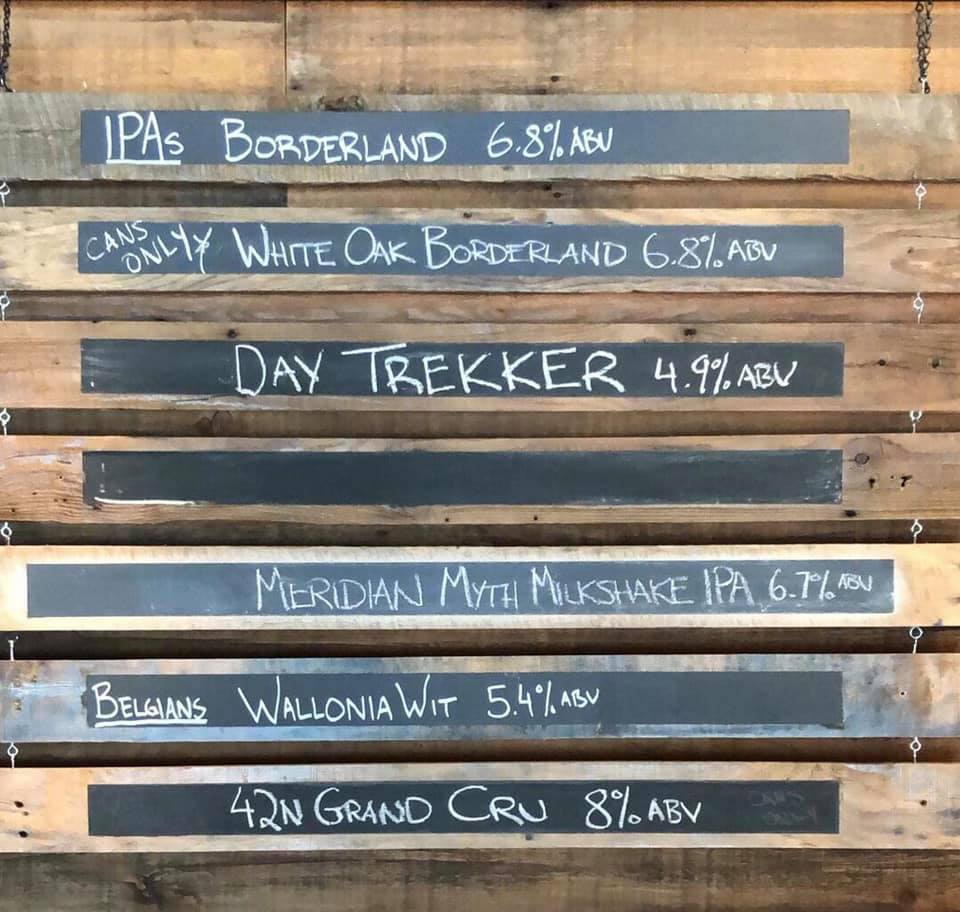 IPAs BORDERLAND 6.8% ABV
CANS ONLY WHITE OAK BORDERLAND 6.8% ABV
DAY TREKKER 4.9% ABV
MERIDIAN MYTH MILKSHAKE IPA 6.7% ABV
BELGIANS WALLONIA WIT 5.4% ABV
42N GRAND CRU 8% ABV
CANS ONLY